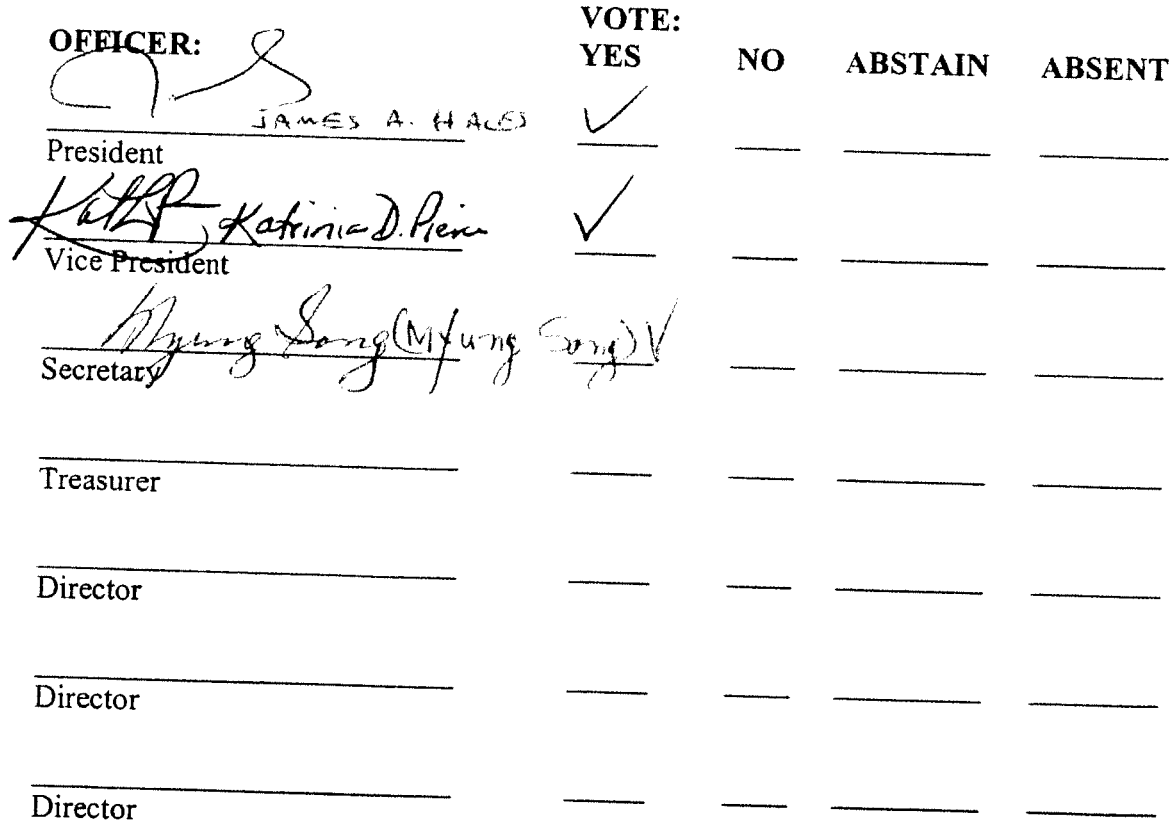 VOTE:
OFFICER: YES NO ABSTAIN ABSENT
JAMES A. HALES ✓
President
Katrinia D. Pierce ✓
Vice President
Myung Song (Myung Song) ✓
Secretary
Treasurer
Director
Director
Director